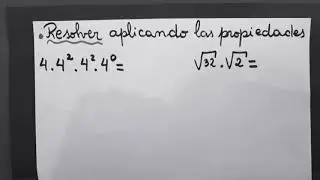 . Resolver aplicando las propiedades
4 . 4² . 4² . 4⁰ =    √32 . √2 =